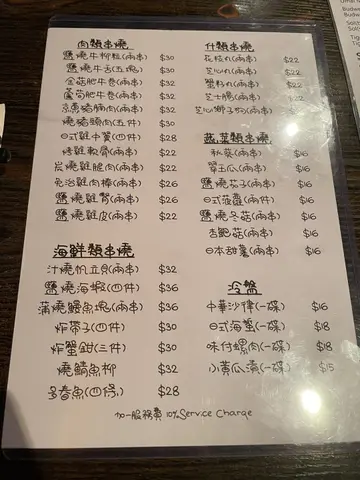 肉類串燒
鹽燒牛柳粒(兩串) $30
鹽燒牛舌(五塊) $30
金菇肥牛卷(兩串) $32
蘆筍肥牛卷(兩串) $32
京蔥豬腩肉(兩串) $32
燒豬頸肉(五件) $30
日式雞中翼(四件) $28
燒雞軟骨(兩串) $22
炭燒雞腿肉(兩串) $22
免治雞肉棒(兩串) $26
鹽燒雞腎(兩串) $26
鹽燒雞皮(兩串) $22
海鮮類串燒
汁燒帆立貝(兩串) $32
鹽燒海蝦(四件) $36
蒲燒鰻魚塊(兩串) $36
炸帶子(四件) $30
炸蟹鉗(三件) $30
燒鯖魚柳 $32
多春魚(四條) $28
什類串燒
花枝丸(兩串) $22
芝心丸(兩串) $22
蟹籽丸(兩串) $22
芝士腸(兩串) $22
芝心獅子狗(兩串) $22
蔬菜類串燒
秋葵(兩串) $16
翠玉瓜(兩串) $16
鹽燒茄子(兩串) $16
日式菠蘿(兩件) $16
鹽燒冬菇(兩串) $16
吉肥菇(兩串) $16
日本甜薯(兩串) $16
冷盤
中華沙律(一碟) $16
日式海蜇(一碟) $18
味付螺肉(一碟) $18
小黃瓜漬(一碟) $15
加一服務費 10% Service Charge